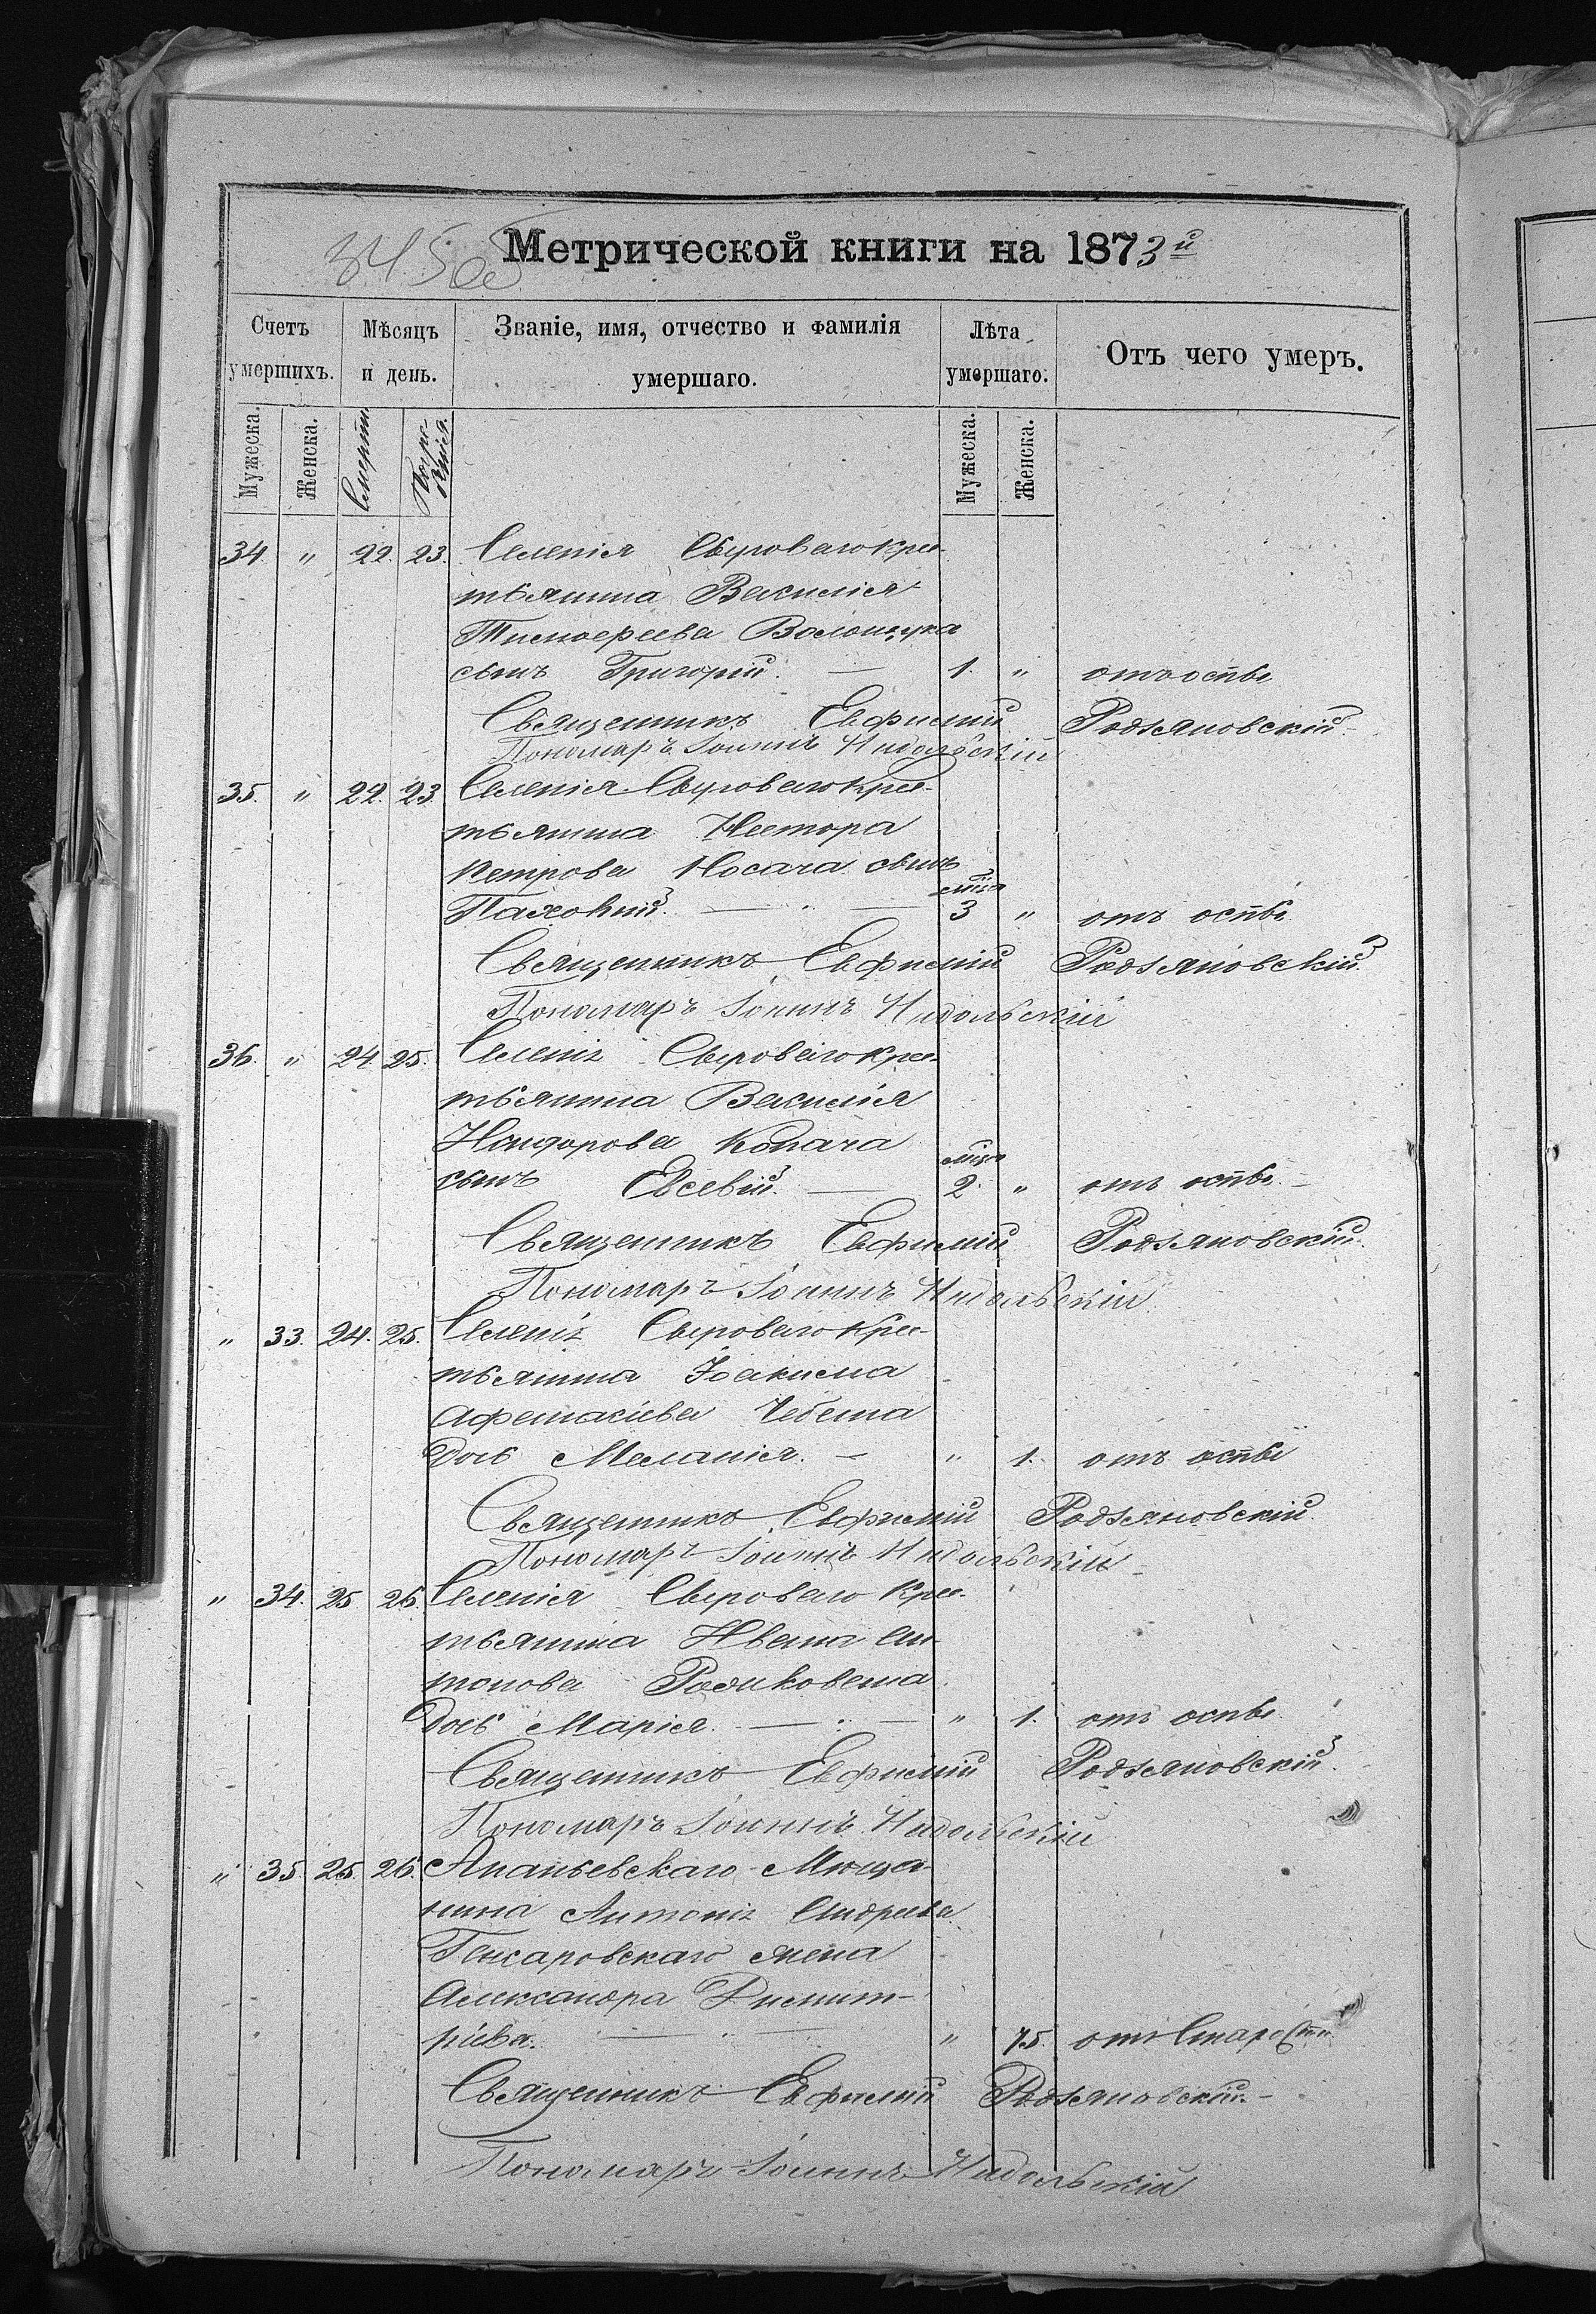 345 об
Метрической книги на 1873й
Счетъ умершихъ.
Мѣсяцъ и день.
Званіе, имя, отчество и фамилія умершаго.
Лѣта умершаго.
Отъ чего умеръ.
Мужеска. Женска. Смерти. Погребенія. Мужеска. Женска.
34 " 22. 23. Селенія Сыроваго кре-
стьянина Василія
Тимоѳеева Волощука
сынъ Григорій. — 1. " отъ оспы
Священникъ Евфимій Родзяновскій
Пономаръ Іоаннъ
35. " 22. 23. Селенія Сыроваго кре-
стьянина Нестора
Петрова Носача сынъ
Пахомій. — мца 3 " отъ оспы
Священникъ Евфимій Родзяновскій.
Пономаръ Іоаннъ
36. " 24 25. Селенія Сыроваго кре-
стьянина Василія
Копача
сынъ Евсевій. — мца 2. " отъ оспы. —
Священникъ Евфимій Родзяновскій.
Пономаръ Іоаннъ
" 33. 24. 25. Селенія Сыроваго кре-
стьянина Іоакима
Афанасіева Чебана
дочь Меланія. — " 1. отъ оспы
Священникъ Евфимій Родзяновскій
Пономаръ Іоаннъ
" 34. 25 26. Селенія Сыроваго кре-
стьянина Ивана Ан-
тонова
дочь Марія. — " 1. отъ оспы.
Священникъ Евфимій Родзяновскій.
Пономаръ Іоаннъ
" 35 25. 26. Ананьевскаго Мѣща-
нина Антонія Андреева
жена
Александра Димит-
ріева. — " 75. отъ Старости
Священникъ Евфимій Родзяновскій. —
Пономаръ Іоаннъ